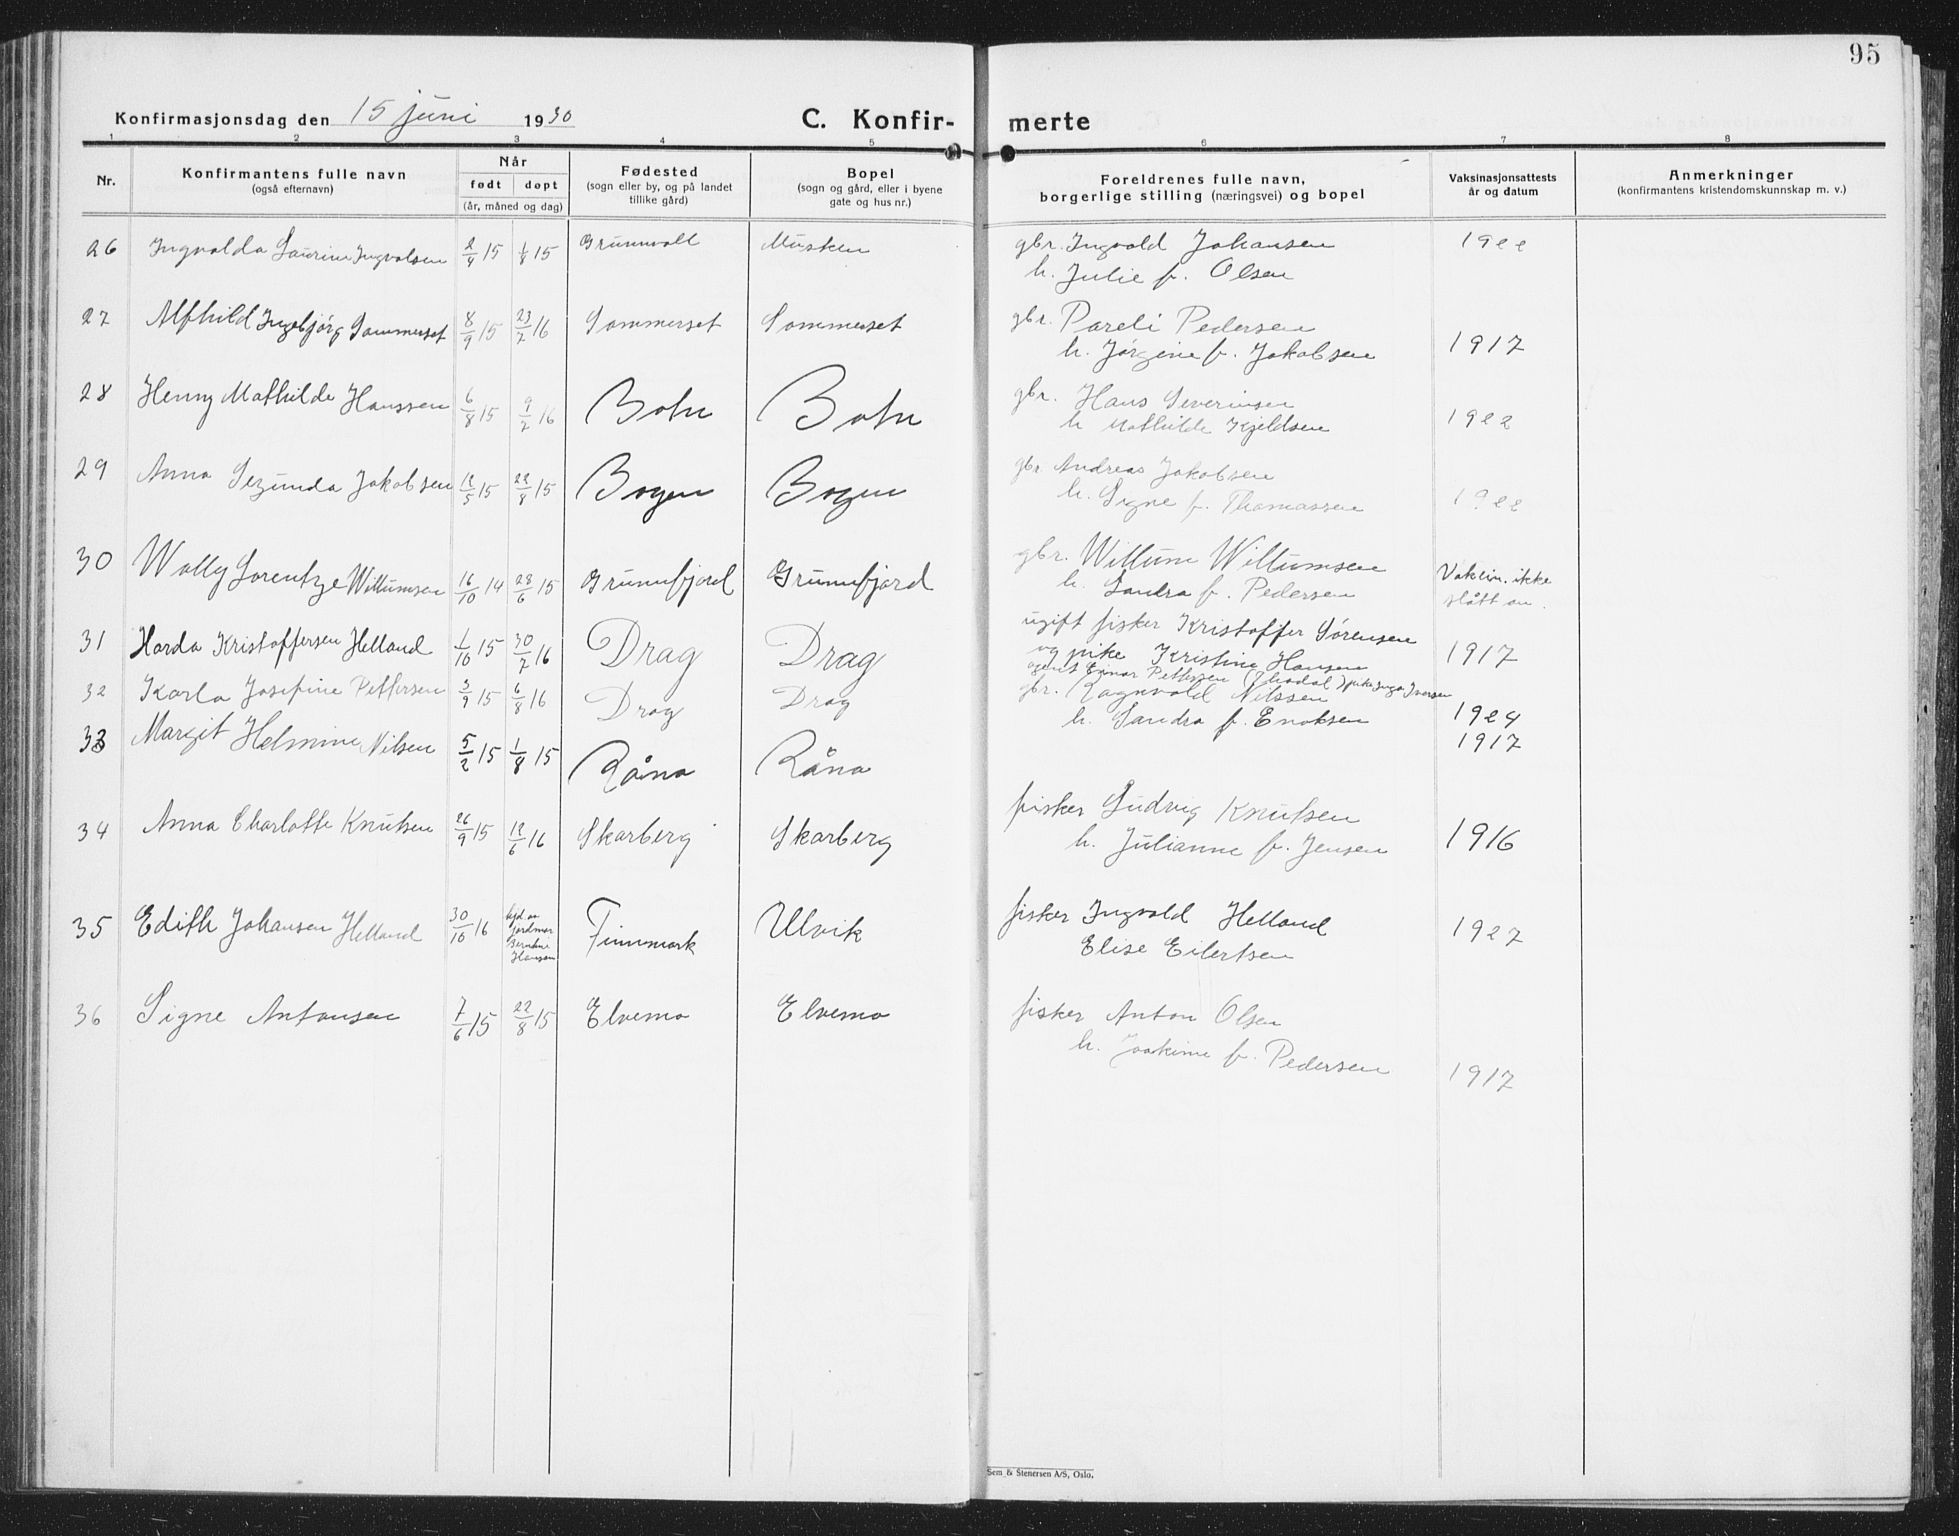 95
Konfirmasjonsdag den 15 juni 1930
C. Konfir-merte
1 2 3 4 5 6 7 8
Nr.
Konfirmantens fulle navn
(også efternavn)
Når
født døpt
(år, måned og dag)
Fødested
(sogn eller by, og på landet
tillike gård)
Bopel
(sogn og gård, eller i byene
gate og hus nr.)
Foreldrenes fulle navn,
borgerlige stilling (næringsvei) og bopel
Vaksinasjonsattests
år og datum
Anmerkninger
(konfirmantens kristendomskunnskap m. v.)
26 Ingvalda Laurine Ingvalsen 2/4 15 1/8 15 Grunnvoll Musken gbr. Ingvald Johansen 1922
h. Julie f. Olsen
27 Alfhild Ingebjørg Sommerset 8/9 15 23/7 16 Sommerset Sommerset gbr. Pareli Pedersen
h. Jørgine f. Jakobsen 1917
28 Henny Mathilde Hanssen 6/8 15 9/2 16 Botn Botn gbr. Hans Severinsen
h Mathilde Kjeldsen 1922
29 Anna Sezunda Jakobsen 12/5 15 22/8 15 Bogen Bogen gbr Andreas Jakobsen
h. Signe f. Thomassen 1922
30 Wally Lorentze Willumsen 16/10 14 28/6 15 Grunnfjord Grunnfjord gbr. Willum Willumsen Vaksin. ikke
h. Sandra f. Pedersen slått an.
31 Harda Kristoffersen Helland 1/10 15 30/7 16 Drag Drag ugift fisker Kristoffer Sørensen
og pike Kristine Hansen 1917
32 Karla Josefine Pettersen 3/9 15 6/8 16 Drag Drag agent Einar Pettersen pike Inga Iversen
33 Margit Helmine Nilsen 5/2 15 1/8 15 Råna Råna gbr. Ragnvald Nilssen
h. Sandra f. Enoksen 1924
1917
34 Anna Charlotte Knutsen 26/9 15 12/6 16 Skarberg Skarberg fisker Ludvig Knutsen
h. Julianne f. Jensen 1916
35 Edith Johansen Helland 30/10 16 hjd. av
jordmor
Hansen Finnmark Ulvik fisker Ingvald Helland
Elise Eilertsen 1927
36 Signe Antonsen 7/6 15 22/8 15 Elvemo Elvemo fisker Anton Olsen
h. Joakime f. Pedersen 1917
Sem & Stenersen A/S, Oslo.